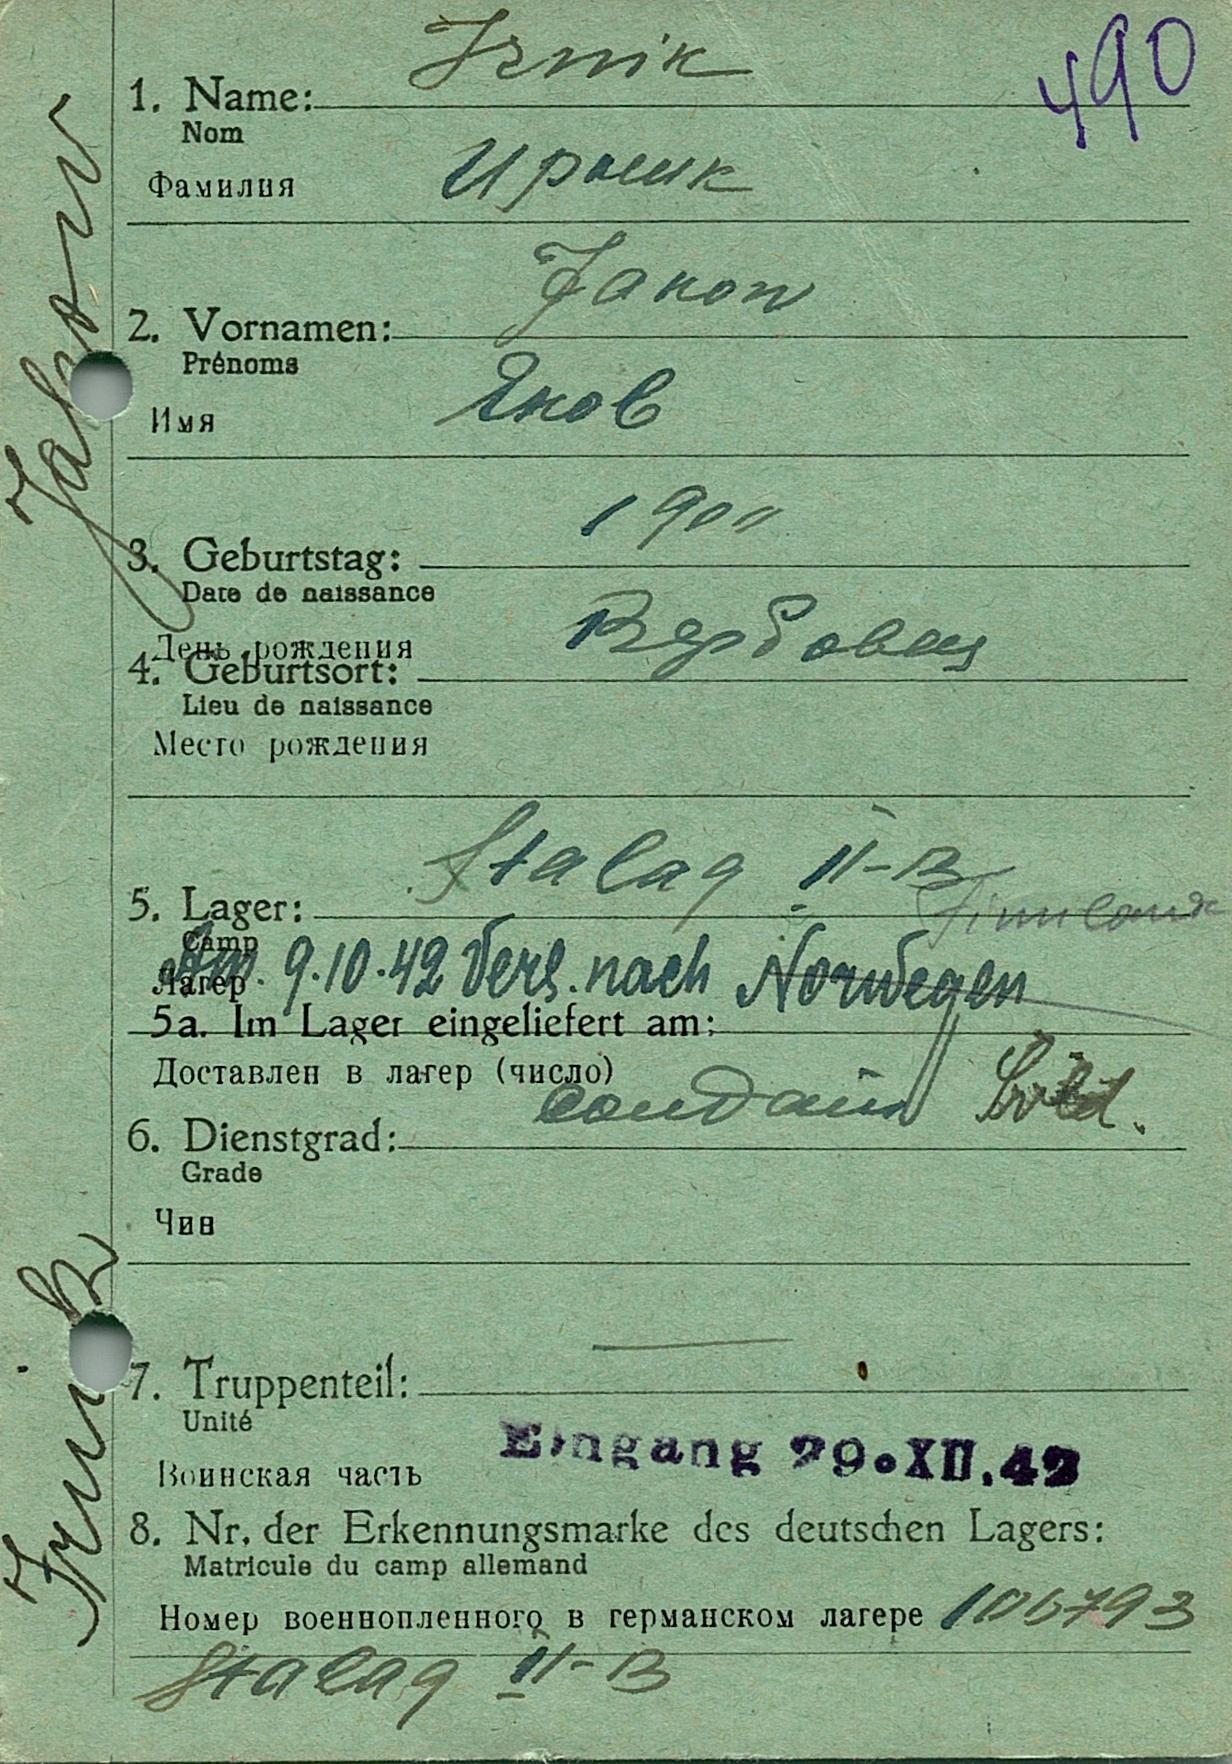 490
Irnik
1. Name:
Nom
Ирник
Фамилия
Jakow
2. Vornamen:
Prénoms
Яков
Имя
1900
3. Geburtstag:
Date de naissance
День рождения
Вербовец
4. Geburtsort:
Lieu de naissance
Место рождения
Stalag II-B
5. Lager:
Finnland
Camp
Лагер
Am 9.10.42 Vers. nach Norwegen
5a. Im Lager eingeliefert am:
Доставлен в лагер (число)
Sold.
6. Dienstgrad:
Grade
Чин
7. Truppenteil:
Unité
Eingang 29.XII.42
Воинская часть
8. Nr. der Erkennungsmarke des deutschen Lagers:
Matricule du camp allemand
Номер военнопленного в германском лагере 106793
Stalag II-B
Irnik Jakow